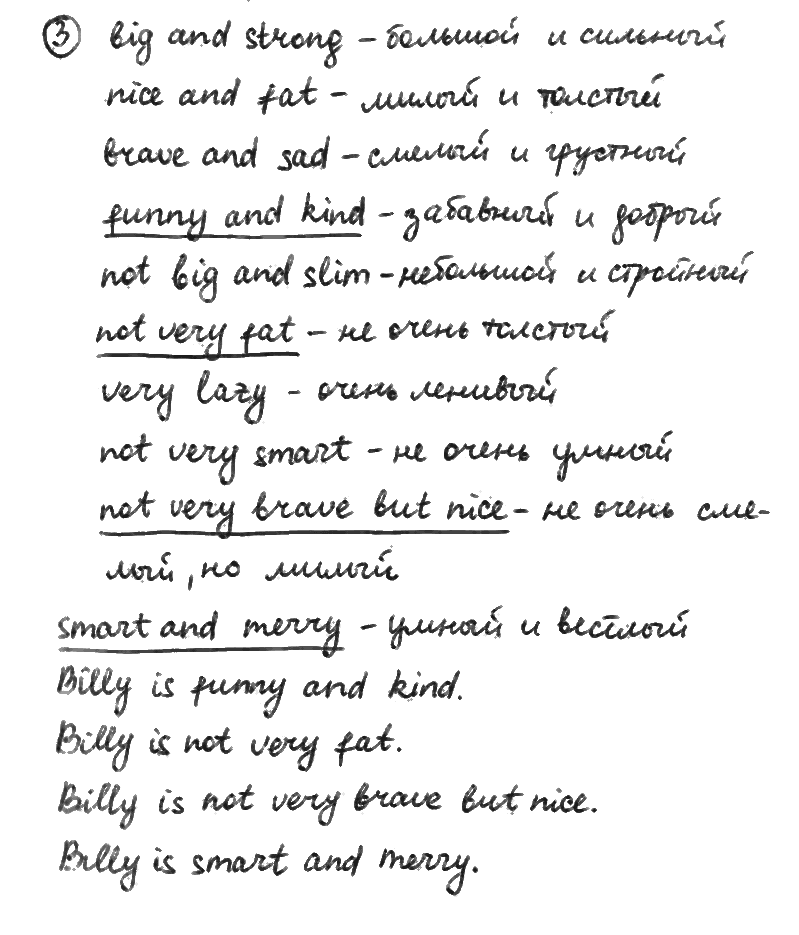 ③ big and strong – большой и сильный
nice and fat – милый и толстый
brave and sad – смелый и грустный
funny and kind – забавный и добрый
not big and slim – небольшой и стройный
not very fat – не очень толстый
very lazy – очень ленивый
not very smart – не очень умный
not very brave but nice – не очень сме-
лый, но милый
smart and merry – умный и весёлый
Billy is funny and kind.
Billy is not very fat.
Billy is not very brave but nice.
Billy is smart and merry.